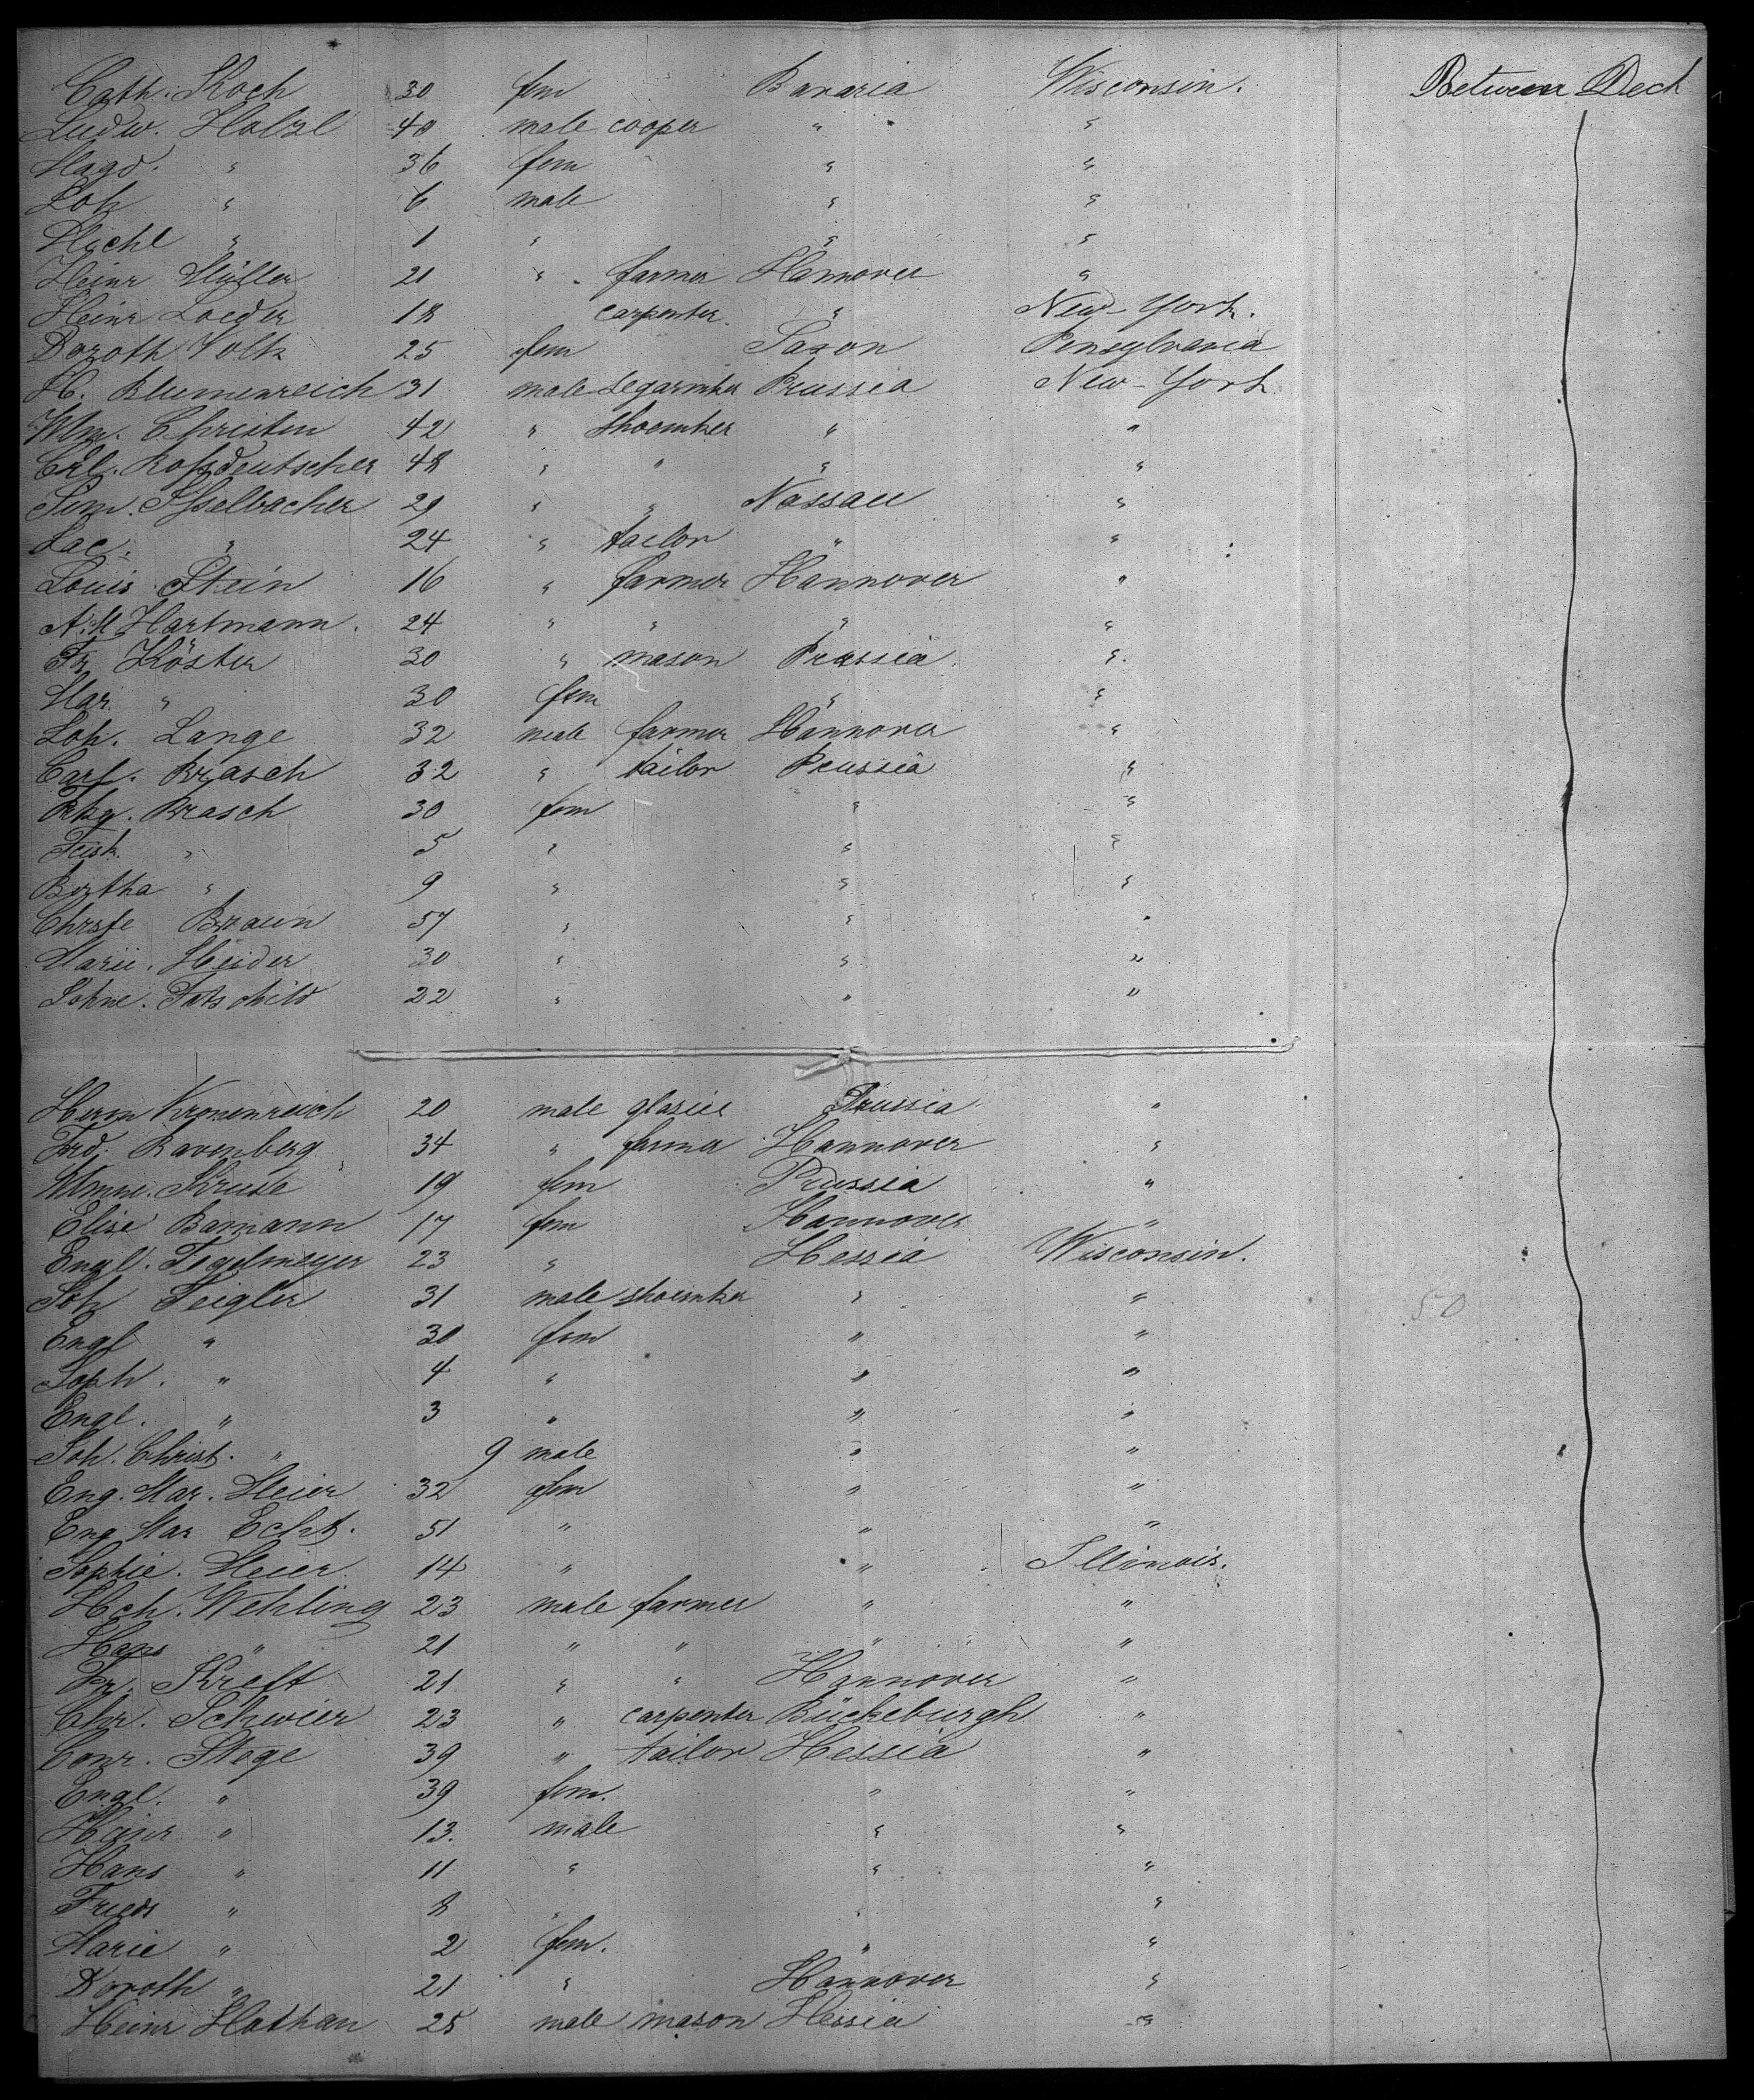 Cath. Koch 30 fem Bavaria Wisconsin. Between Deck
Ludw. Holzl 40 male cooper " "
Magd. " 36 fem " "
Joh " 6 male " "
Michl " 1 " " "
Heinr Müller 21 " farmer Hannover "
Heinr Loeder 18 carpenter " New-York.
Doroth Voltz 25 fem Saxon Pensylvania
H. Blumenreich 31 male Segarmker Prussia New-York
Wlm. Christen 42 " Shoemker " "
Crl. Roßdeutscher 48 " " " "
Sim. Isselbacher 29 " " Nassau "
Jac. " 24 " tailor " "
Louis Stein 16 " farmer Hannover "
A. M Hartmann. 24 " " " "
Fr. Köster 30 " mason Prussia. "
Mar. " 30 fem " "
Joh. Lange 32 male farmer Hannover "
Carl. Brasch 32 " tailor Prussia "
Brasch 30 fem " "
" 5 " " "
Bertha " 9 " " "
Chrste Braun 57 " " "
Marie. Heider 30 " " "
22 " " "
Herm Kronenreich 20 male glasier Prussia "
Frd. Ravenberg 34 " farmer Hannover "
Wlmne. Kruse 19 fem Prussia "
Elise Barmann 17 fem Hannover "
Engl. Tegelmeyer 23 " Hessia Wisconsin.
Joh Feigler 31 male shoemker " "
Engl " 30 fem " " 50
Soph. " 4 " " "
Engl. " 3 " " "
Joh. Christ. " 9 male " "
Eng. Mar. Meier 32 fem " "
Eng Mar Echt. 51 " " "
Sophie. Meier 14 " " Illinois.
Hch. Wehling 23 male farmer " "
Hans " 21 " " " "
Fr. Kreft 21 " " Hannover "
Chr. Schwier 23 " carpenter Bückeburgh "
Conr. Stege 39 " tailor Hessia "
Engl. " 39 fem. " "
Heinr " 13. male " "
Hans " 11 " " "
Friedr " 8 " " "
Marie " 2 fem. " "
Doroth " 21 " Hannover "
Heinr Hathan 25 male mason Hessia "